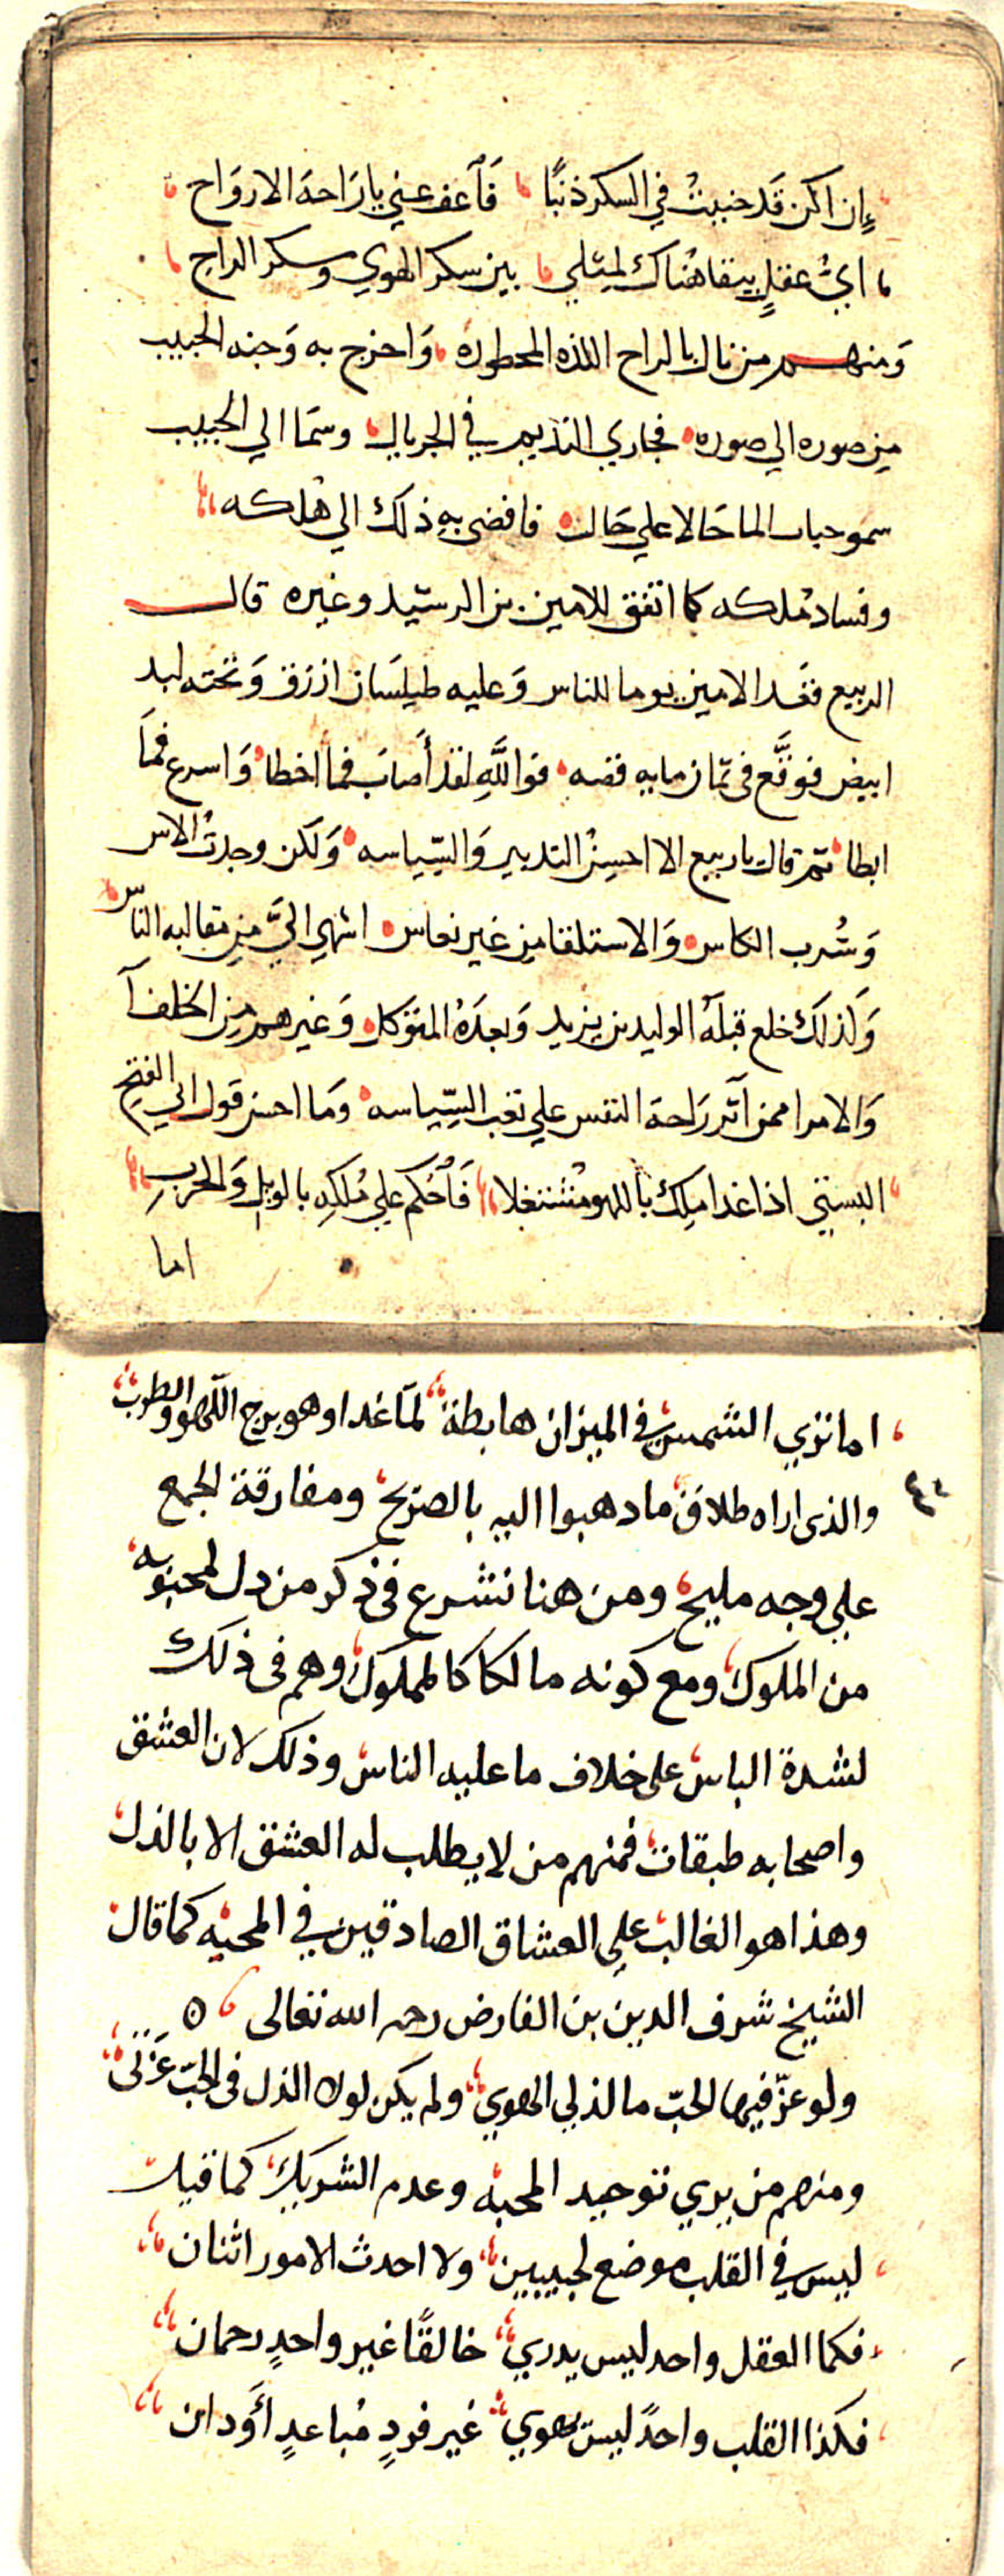 إن اكن قد جنيت في السكر ذنبًا فآعف عني يا راحة الارواح
ايُّ عقلٍ يبقا هُناك لمثلي بين سكر الهوي وسكر الراح
وَمنهم من نال بالراح اللذه المحظوره وَاخرج به وَجنه الحبيب
من صوره الي صوره فجاري النديم في الجريال وسمَا الي الحبيب
سمو حباب الما حَالا علي حَال فافضى به ذلك الي هُلكه
وفساد مُلكه كما اتفق للامين بن الرشيد وغيره قال
الربيع فقَعد الامين يوما للناس وَعليه طيلسَان ازرق وَتحته لبد
ابيض فوقَّع في ثمان مايه قصه فوالله لقد أصاب فما اخطا وَاسرع فمَا
ابطا ثم قال يا ربيع الا احسِنُ التدبير وَالسِّياسه وَلكن وجدتُ الاس
وَشُرب الكاس وَالاستلقا من غير نعاس اشهي اليَّ من مقالبه الناس
وَلذلك خلع قبلَه الوليد بن يزيد وَبعدَهُ المتوكل وَغيرهم من الخلفآ
وَالامرا ممن آثر رَاحة النفس علي تعب السِّياسه وَما احسن قول ابي الفتح
البستي اذا غدا ملِك باللهو مُشتغلا فَآحْكم علي مُلكِه بالويل وَالحربِ
اما
اما تري الشمس في الميزان هابطة لمّا غدا وهو برج اللّهو والطرب
والذى اراه طلاق ما دهبوا اليه بالصريح ومفارقة الجمع
علي وجه مليح ومن هنا نشرع فى ذكر من دل لمحبوبه
من الملوك ومع كونه مالكا كالمملوك وهم فى ذلك
لشدة الباس على خلاف ما عليه الناس وذلك لان العشق
واصحابه طبقات فمنهم من لا يطلب له العشق الا بالذل
وهذا هو الغالب علي العشاق الصادقين في المحبه كما قال
الشيخ شرف الدين بن الفارض رحمه الله تعالى
ولو عزّ فيها لحبّ ما لذ لي الهوي ولم يكن لولا الذل فى الحبّ عَزتى
ومنهم من يري توحيد المحبه وعدم الشريك كما قيل
ليس في القلب موضع لحبيبين ولا احدث الامور اثنان
فكما العقل واحد ليس يدري خالقًا غير واحدٍ رحمان
فكذا القلب واحدً ليس يهوي غير فردٍ مُباعدٍ أوَدان